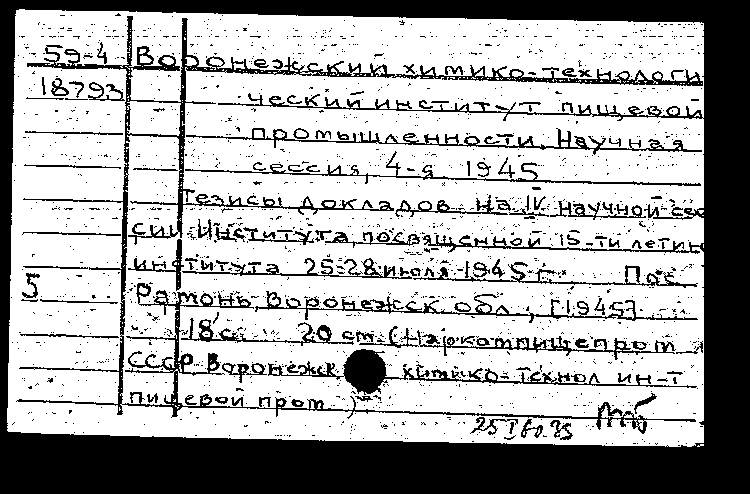 59-4 Воронежский химико-технологи
18793 ческий институт пищевой
промышленности. Научная
сессия, 4-я 1945
Тезисы докладов на IV научной сес
сии Института, посвященной 15-ти летию
института 25-28 июля 1945 г. Пос.
5 Рамонь, Воронежск. обл., [1945]
18 с. 20 см. (Наркомпищепром
СССР Воронежск химико-технол ин-т
пищевой пром )